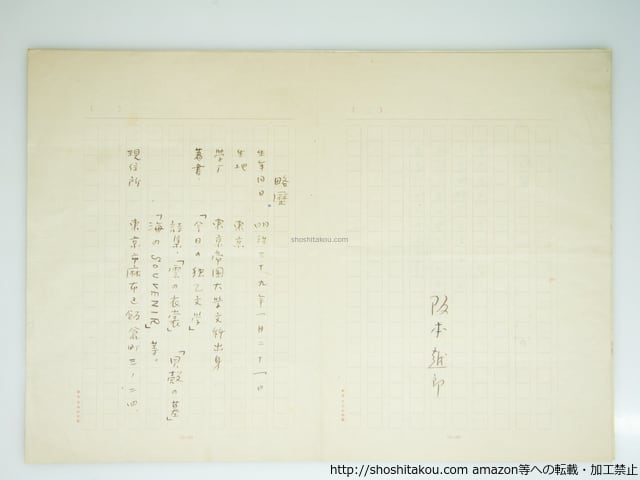 阪本越郎
略歴
生年月日 明治三十九年一月二十一日
生地 東京
学下 東京帝国大学文科出身
著書 「今日の独乙文学」
詩集・「雲の衣裳」「貝殻の墓」
「海のSOUVENIR」等。
現住所 東京市麻布区飯倉町三ノ二四
shoshitakou.com
http://shoshitakou.com amazon等への転載・加工禁止